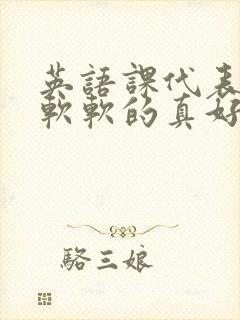 英語課代表
軟軟的真好
駱三娘